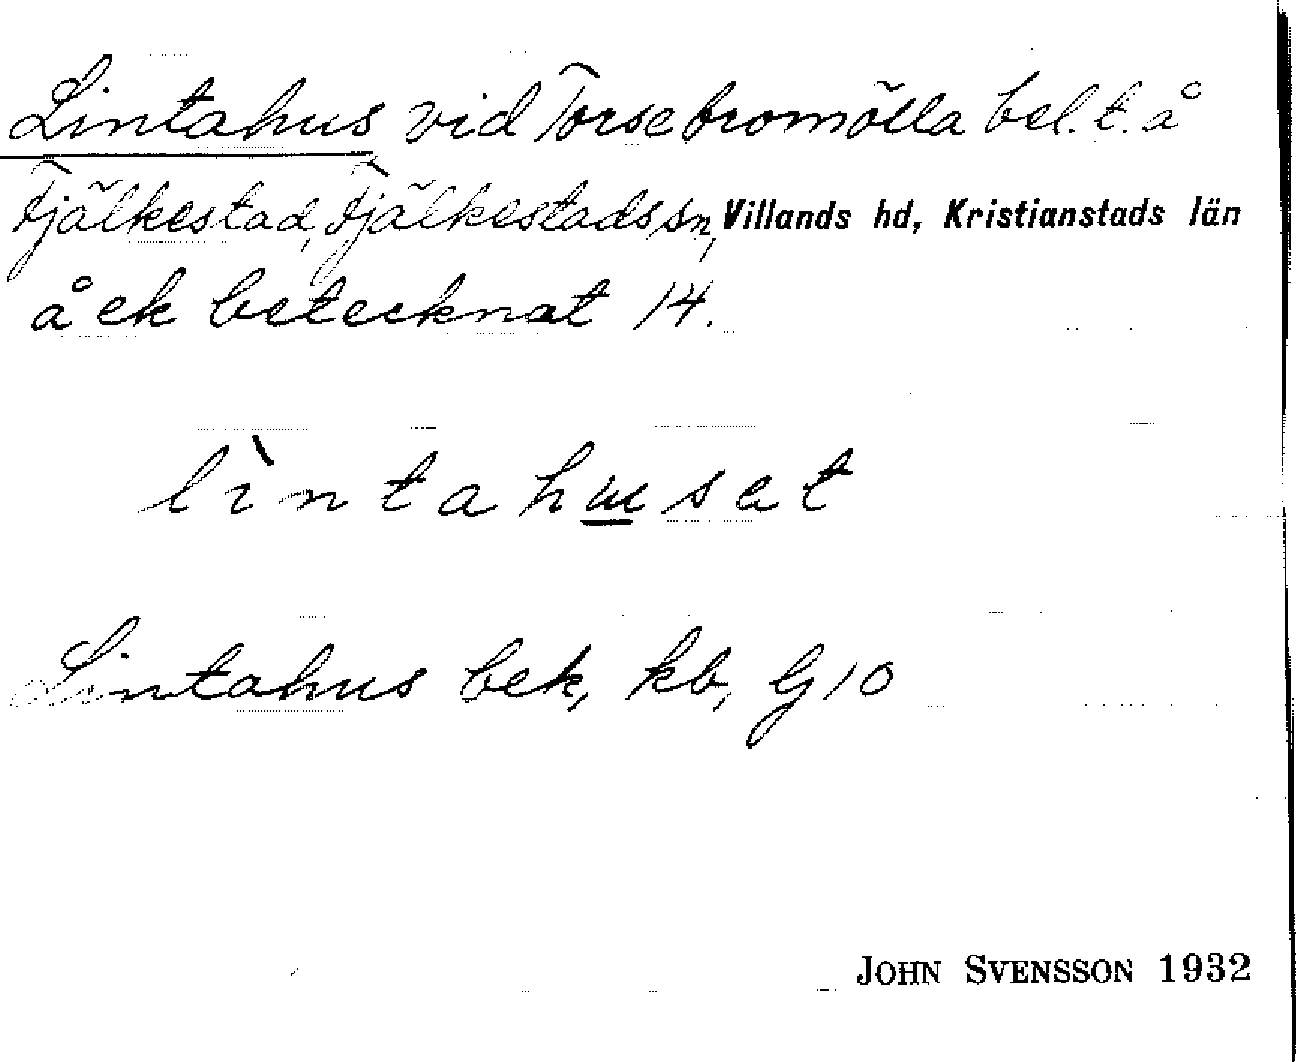 Lintahus vid Torsebromölla bel. t. å
Fjälkestad, Fjälkestads sn, Villands hd, Kristianstads län
å ek betecknat 14.
lìntahuset
Lintahus bek, kb, G 10
JOHN SVENSSON 1932